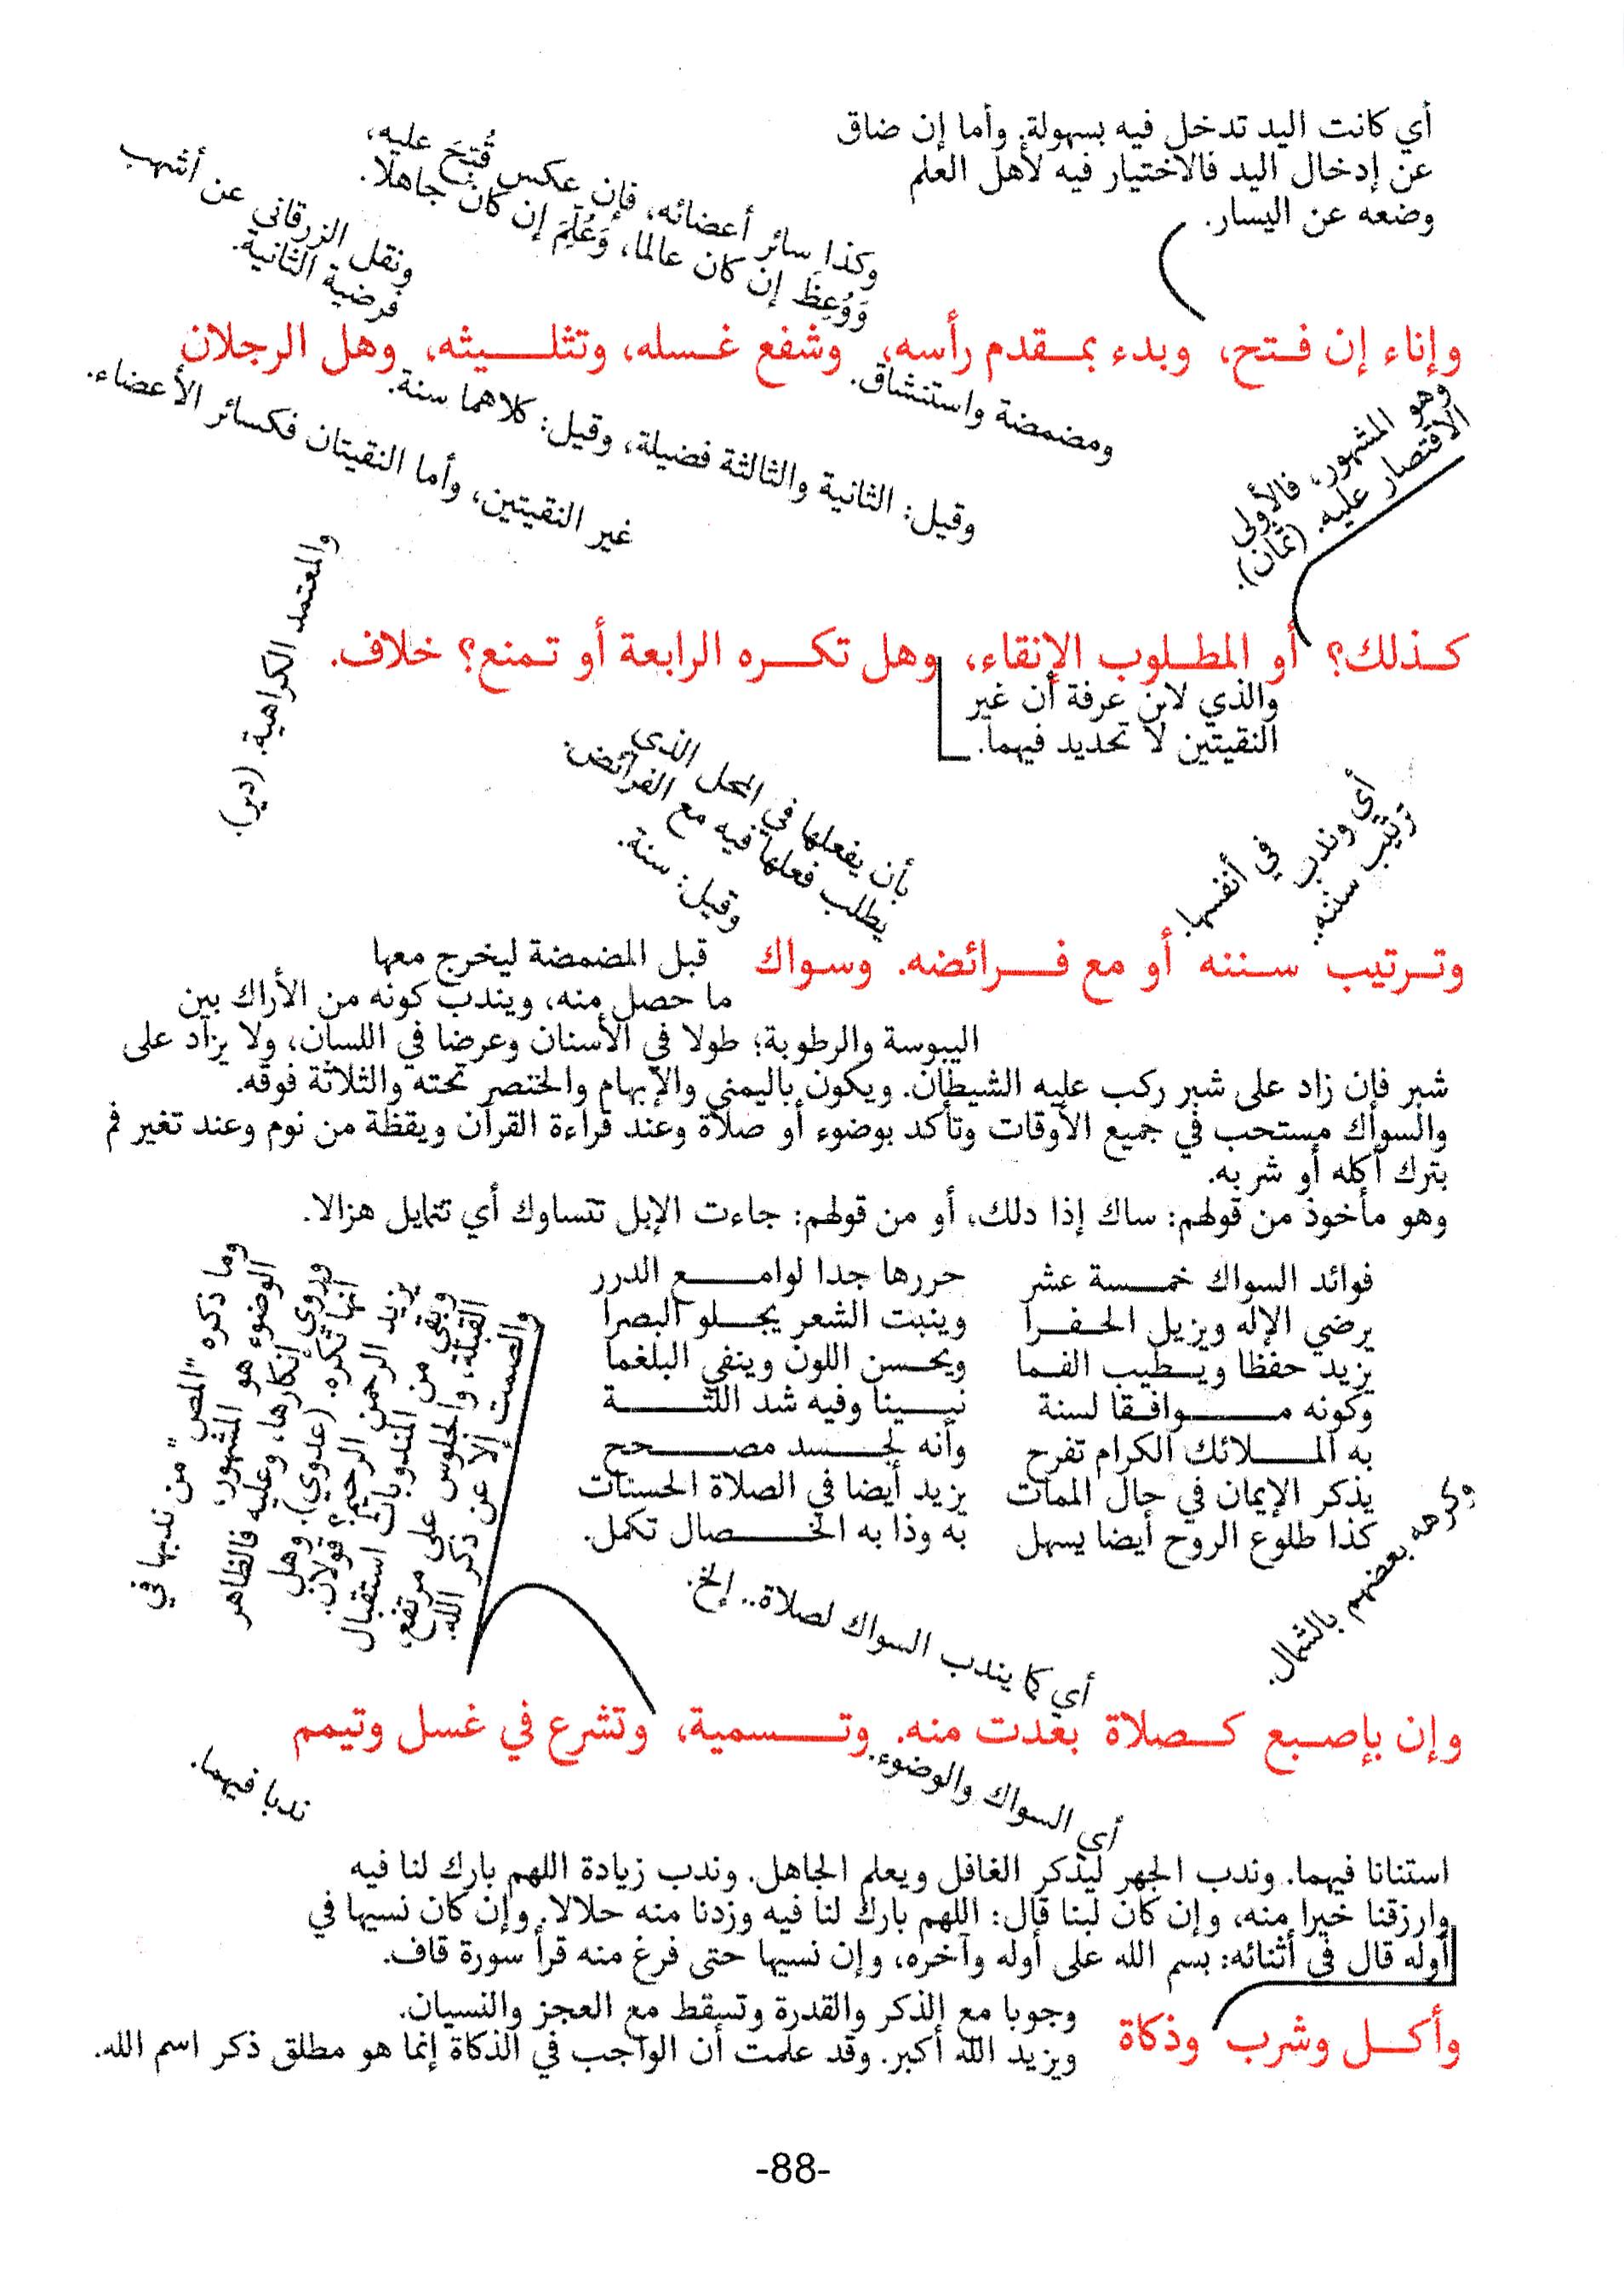 أي كانت اليد تدخل فيه بسهولة. وأما إن ضاق
عن إدخال اليد فالاختيار فيه لأهل العلم
وضعه عن اليسار.
وكذا سائر أعضائه، فإن عكس قُبِّحَ عليه،
وَوُعِظَ إن كان عالما، وَعُلِّمَ إن كان جاهلا.
ونقل الزرقاني عن أشهب
فرضية الثانية.
وإناء إن فتح، وبدء بمقدم رأسه، وشفع غسله، وتثليثه، وهل الرجلان
ومضمضة واستنشاق.
وقيل: الثانية والثالثة فضيلة، وقيل: كلاهما سنة.
غير النقيتين، وأما النقيتان فكسائر الأعضاء.
وهو المشهور، فالأولى
الاقتصار عليه. (تمان).
والمعتمد الكراهية. (دير).
كذلك؟ أو المطلوب الإنقاء، وهل تكره الرابعة أو تمنع؟ خلاف.
والذي لابن عرفة أن غير
النقيتين لا تحديد فيهما.
أي وندب
ترتيب سننه.
في أنفسها.
بأن يفعلها في المحل الذي
يطلب فعلها فيه مع الفرائض.
وقيل: سنة.
وترتيب سننه أو مع فرائضه. وسواك
قبل المضمضة ليخرج معها
ما حصل منه، ويندب كونه من الأراك بين
اليبوسة والرطوبة؛ طولا في الأسنان وعرضا في اللسان، ولا يزاد على
شبر فإن زاد على شبر ركب عليه الشيطان. ويكون باليمنى والإبهام والخنصر تحته والثلاثة فوقه.
والسواك مستحب في جميع الأوقات وتأكد بوضوء أو صلاة وعند قراءة القرآن ويقظة من نوم وعند تغير فم
بترك أكله أو شربه.
وهو مأخوذ من قولهم: ساك إذا دلك، أو من قولهم: جاءت الإبل تتساوك أي تتمايل هزالا.
فوائد السواك خمسة عشر حررها جدا لوامع الدرر
يرضي الإله ويزيل الحفرا وينبت الشعر يجلو البصرا
يزيد حفظا ويطيب الفما ويحسن اللون وينفي البلغما
وكونه موافقا لسنة نبينا وفيه شد اللثة
به الملائك الكرام تفرح وأنه لجسد مصحح
يذكر الإيمان في حال الممات يزيد أيضا في الصلاة الحسنات
كذا طلوع الروح أيضا يسهل به وذا به الخصال تكمل.
وكرهه بعضهم بالشمال.
أي كما يندب السواك لصلاة.. إلخ.
وما ذكره "المص" من ندبها في
الوضوء هو المشهور،
وروي إنكارها، وعليه فالظاهر
أنها تكره. (عدوي). وهل
يزيد الرحمن الرحيم؟ قولان.
وبقي من المندوبات استقبال
القبلة، والجلوس على مرتفع،
والصمت إلا عن ذكر الله.
وإن بإصبع كصلاة بعدت منه. وتسمية، وتشرع في غسل وتيمم
أي السواك والوضوء.
ندبا فيهما.
استنانا فيهما. وندب الجهر ليذكر الغافل ويعلم الجاهل. وندب زيادة اللهم بارك لنا فيه
وارزقنا خيرا منه، وإن كان لبنا قال: اللهم بارك لنا فيه وزدنا منه حلالا. وإن كان نسيها في
أوله قال في أثنائه: بسم الله على أوله وآخره، وإن نسيها حتى فرغ منه قرأ سورة قاف.
وأكل وشرب وذكاة
وجوبا مع الذكر والقدرة وتسقط مع العجز والنسيان.
ويزيد الله أكبر. وقد علمت أن الواجب في الذكاة إنما هو مطلق ذكر اسم الله.
-88-